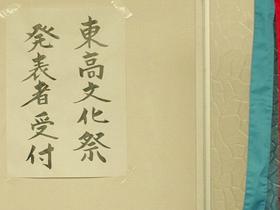 東高文化祭
発表者受付